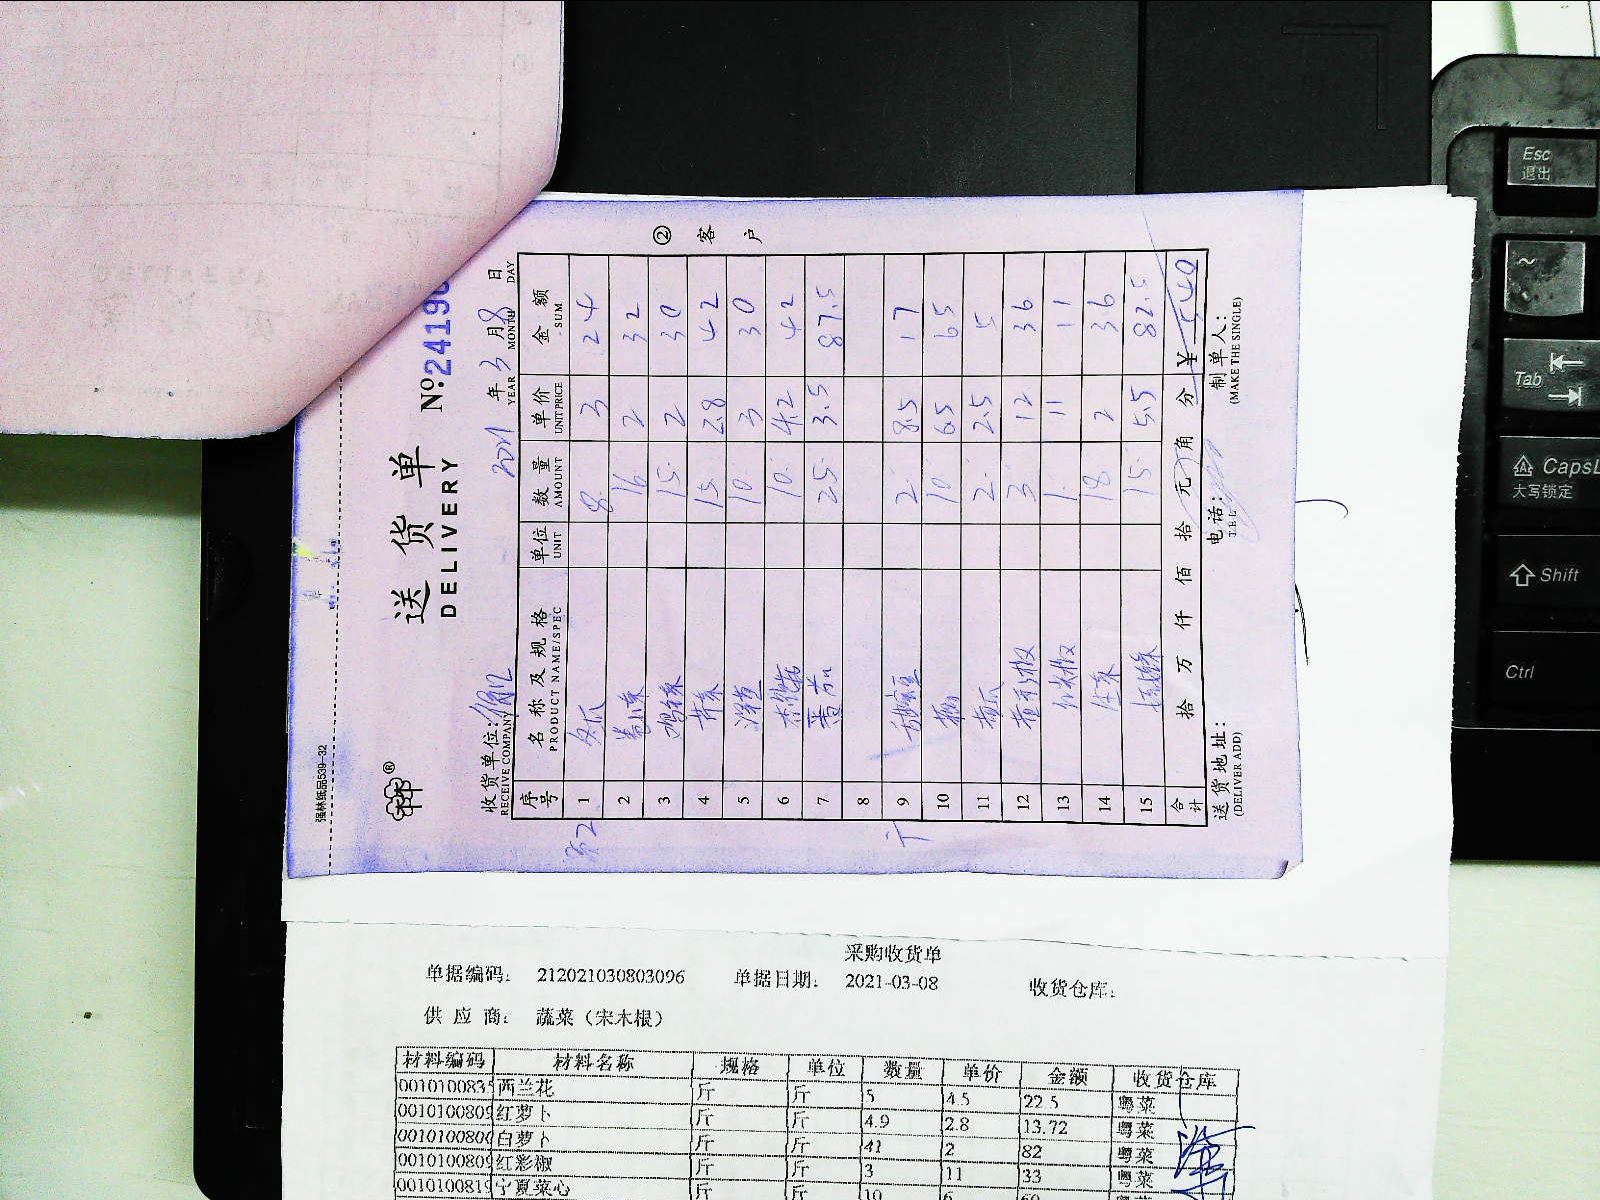 强林纸品539-32
送货单
DELIVERY
№ 24190
收货单位:
RECEIVE COMPANY
2021 年 3 月 8 日
YEAR MONTH DAY
序号 名称及规格 单位 数量 单价 金额
PRODUCT NAME/SPEC UNIT AMOUNT UNIT PRICE SUM
1 冬瓜 8 3 24
2 16 2 32
3 15 2 30
4 芹菜 15 2.8 42
5 洋葱 10 3 30
6 10 4.2 42
7 番茄 25 3.5 87.5
8
9 2 8.5 17
10 10 6.5 65
11 黄瓜 2 2.5 5
12 3 12 36
13 1 11 11
14 18 2 36
15 15 5.5 82.5
合计 拾 万 仟 佰 拾 元 角 分 ¥ 540
送货地址: 电话: 制单人:
(DELIVER ADD) TEL (MAKE THE SINGLE)
② 客户
采购收货单
单据编码: 212021030803096 单据日期: 2021-03-08 收货仓库:
供应商: 蔬菜(宋木根)
材料编码 材料名称 规格 单位 数量 单价 金额 收货仓库
0010100835 西兰花 斤 斤 5 4.5 22.5 粤菜
001010080 红萝卜 斤 斤 4.9 2.8 13.72 粤菜
001010080 白萝卜 斤 斤 41 2 82 粤菜
001010080 红彩椒 斤 斤 3 11 33 粤菜
001010081 宁夏菜心 斤 斤 10 6 60
Esc
退出
~
Tab
CapsL
大写锁定
Shift
Ctrl